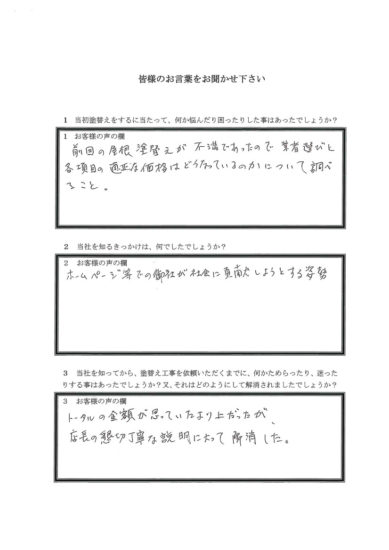 皆様のお言葉をお聞かせ下さい
1 当初塗替えをするに当たって、何か悩んだり困ったりした事はあったでしょうか？
1 お客様の声の欄
前回の屋根塗替えが不満であったので業者選びと
各項目の適正な価格はどうなっているのかについて調べ
ること。
2 当社を知るきっかけは、何でしたでしょうか？
2 お客様の声の欄
ホームページ等での御社が社会に貢献しようとする姿勢
3 当社を知ってから、塗替え工事を依頼いただくまでに、何かためらったり、迷った
りする事はあったでしょうか？又、それはどのようにして解消されましたでしょうか？
3 お客様の声の欄
トータルの金額が思っていたより上だったが、
店長の懇切丁寧な説明によって解消した。